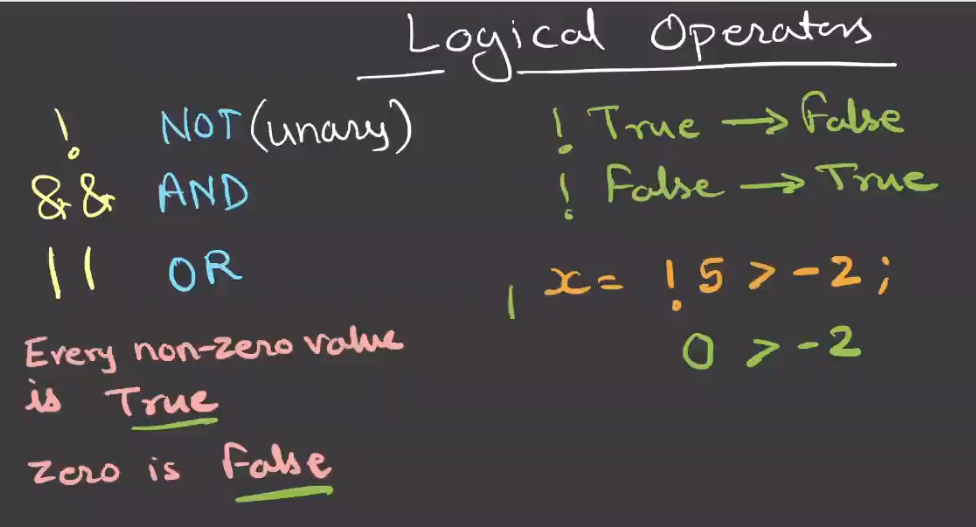 Logical Operators
! NOT (unary)
&& AND
|| OR
Every non-zero value
is True
zero is False
! True → False
! False → True
1 x = ! 5 > -2 ;
0 > -2